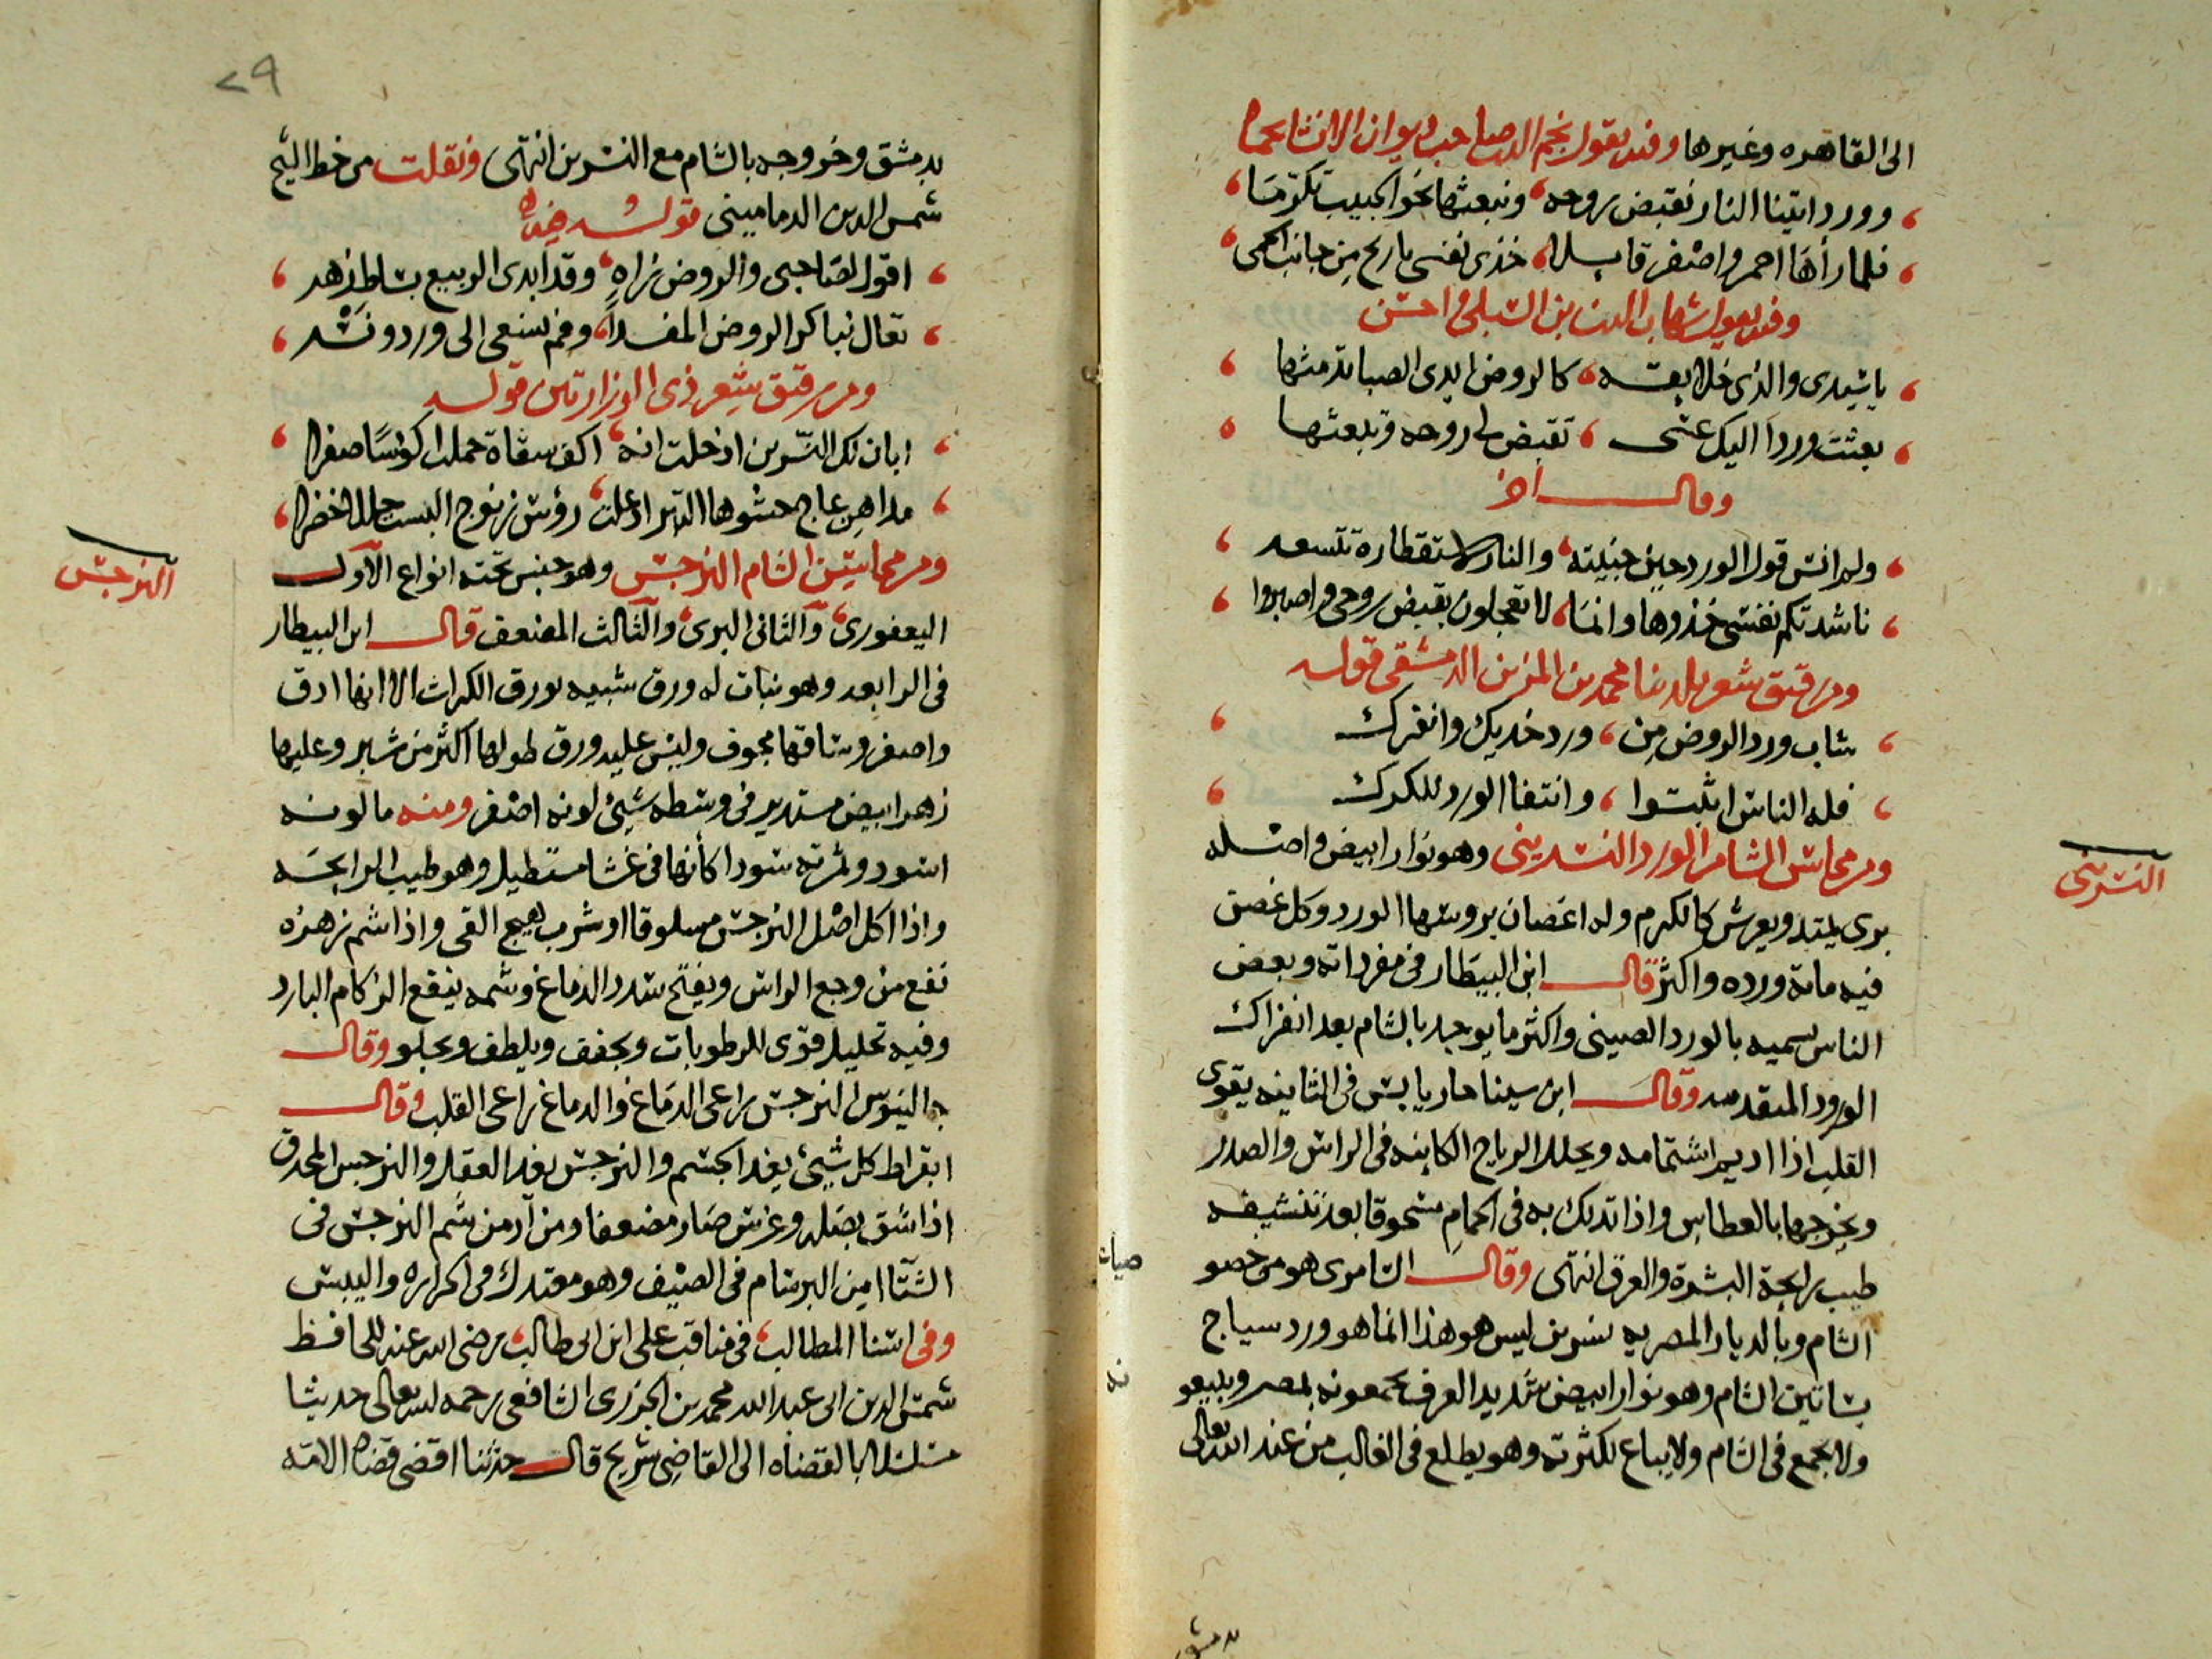 الى القاهره وغيرها وفيه يقول نجم الدين صاحب ديوان الانشا بحماه
وورد اتينا النار نقبض روحه ونبعثها نحو الحبيب تكرمًا
فلما رأها احمر واصفر قايلا خذى نفسى يا ريح من جانب الحمى
وفيه يقول شهاب الدين بن الشبلى واحسن
ياسيدى والذى خلايقه كالروض ايدى الصبا تدمثها
بعثت وردا اليك عنى تقبض لى روحه وتبعثها
وقال اخر
ولم انس قول الورد حين جنيته والنار لاستقطاره تتسعر
ناشدتكم نفسى خذوها وانما لا تعجلون بقبض روحى واصبروا
ومن رقيق شعر بلدينا محمد بن المزين الدمشقى قوله
شاب ورد الروض من ورد خديك وانفرك
فله الناس اثبتوا وانتفا الورد للكرك
ومن محاسن الشام الورد النسرينى وهو نوار ابيض واصله
برى يمتد ويعرش كالكرم وله اغصان بروسها الورد وكل غصن
فيه ماية ورده واكثر قال ابن البيطار فى مفرداته وبعض
الناس يسميه بالورد الصينى واكثر ما يوجد بالشام بعد انفراك
الورود المتقدمه وقال ابن سينا حار يابس فى الثانيه يقوى
القلب اذا اديم اشتمامه ويحلل الرياح الكاينه فى الراس والصدر
ويخرجها بالعطاس واذا تدلك به فى الحمام مسحوقا بعد تنشيفه
طيب رايحة البشرة والعرق انتهى وقال الشامرى هو من خصوصيات
الشام وبالديار المصريه نسرين ليس هو هذا انما هو ورد سياج
بساتين الشام وهو نوار ابيض شديد العرف يجمعونه بمصر ويبيعونه
ولا يجمع فى الشام ولا يباع لكثرته وهو يطلع فى الغالب من عند الله تعالى
النسرينى
بدمشق
٢٩
بدمشق وخروجه بالشام مع النسرين انتهى ونقلت من خط الشيخ
شمس الدين الدمامينى قوله وفيه
اقول لصاحبى والروض زاه وقد ابدى الربيع بساط زهر
تعال نباكر الروض المفدا وقم نسعى الى ورد ونسر
ومن رقيق شعر ذى الوزارتين قوله
ابان لك النسرين اذ خلت انه اكف سقاة حملت اكؤسًا صفرا
مداهن عاج حشوها التبر اذ علت رؤس زنوج البست حللا خضرا
ومن محاسن الشام النرجس وهو جنس تحته انواع الاول
اليعفورى والثانى البرى والثالث المضعف قال ابن البيطار
فى الرابعه وهو نبات له ورق شبيه بورق الكراث الا انها ادق
واصغر وساقها مجوف وليس عليه ورق طولها اكثر من شبر وعليها
زهر ابيض مستدير فى وسطه شيئ لونه اصفر ومنه ما لونه
اسود وثمرته سودا كأنها فى غشا مستطيل وهو طيب الرايحه
واذا اكل اصل النرجس مسلوقا او شرب يهيج القى واذا شم زهره
نفع من وجع الراس ويفتح سدد الدماغ وشمه ينفع الزكام البارد
وفيه تحليل قوى للرطوبات ويجفف ويلطف ويجلو وقال
جالينوس النرجس راعى الدماغ والدماغ راعى القلب وقال
ابقراط كل شيئ يغدا الجسم والنرجس يغدا العقل والنرجس المحدق
اذا شق بصله وغرس صار مضعفا ومن ادمن شم النرجس فى
الشتا امن البرسام فى الصيف وهو معتدل فى الحراره واليبس
وفى اسنا المطالب فى مناقب على ابن ابى طالب رضى الله عنه للحافظ
شمس الدين ابى عبد الله محمد بن الجزرى الشافعى رحمه الله تعالى حديثا
مسلسلا بالقضاه الى القاضى شريح قال حدثنا اقضى قضاه الامه
النرجس